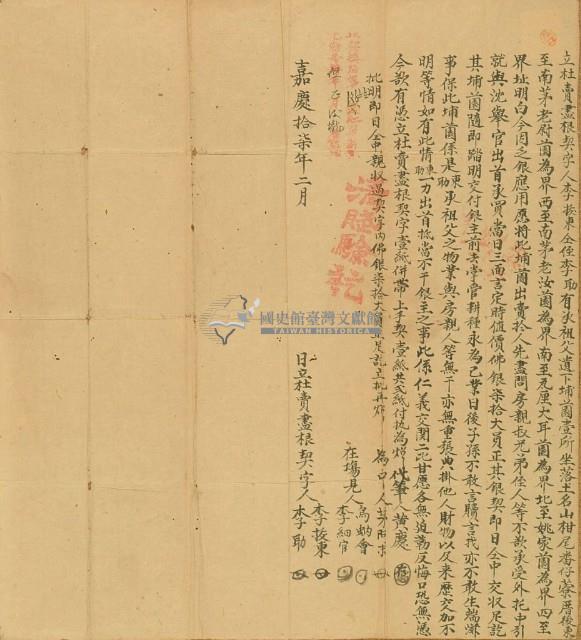 立杜賣盡根契字人李拔東仝侄李助有承祖父遺下埔園壹所坐落土名山柑尾番仔藔厝後東
至南茅老尉園為界西至南茅老汝園為界南至厝大耳園為界北至姚家園為界四至
界址明白今因乏銀應用應將此埔園出賣於人先盡問房親叔兄弟侄人等不欲承受外托中引
就與沈舉官出首承買當日三面言定時值價佛銀柒拾大員正其銀契即日仝中交收足訖
其埔園隨即踏明交付銀主前去掌管耕種永為己業日後子孫不敢言贖言找亦不敢生端滋
事保此埔園係是東助承祖父之物業與房親人等無干亦無重張典掛他人財物以及来歷交加不
明等情如有此情東助一力出首抵當不干銀主之事此係仁義交関二比甘愿各無迫勒反悔口恐無憑
今欲有憑立杜賣盡根契字壹紙併帶上手契壹紙共弍紙付执為炤 代筆人黃慶
批明即日仝中親收過契字內佛銀柒拾大員正足訖立批再炤 為中人
在塲見人 李細官
嘉慶拾柒年二月 日立杜賣盡根契字人 李拔東
李助
國史館臺灣文獻館
TAIWAN HISTORICA